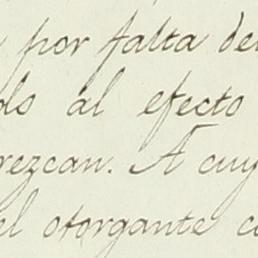 por falta de
al efecto
rezcan. A cuy
el otorgante c